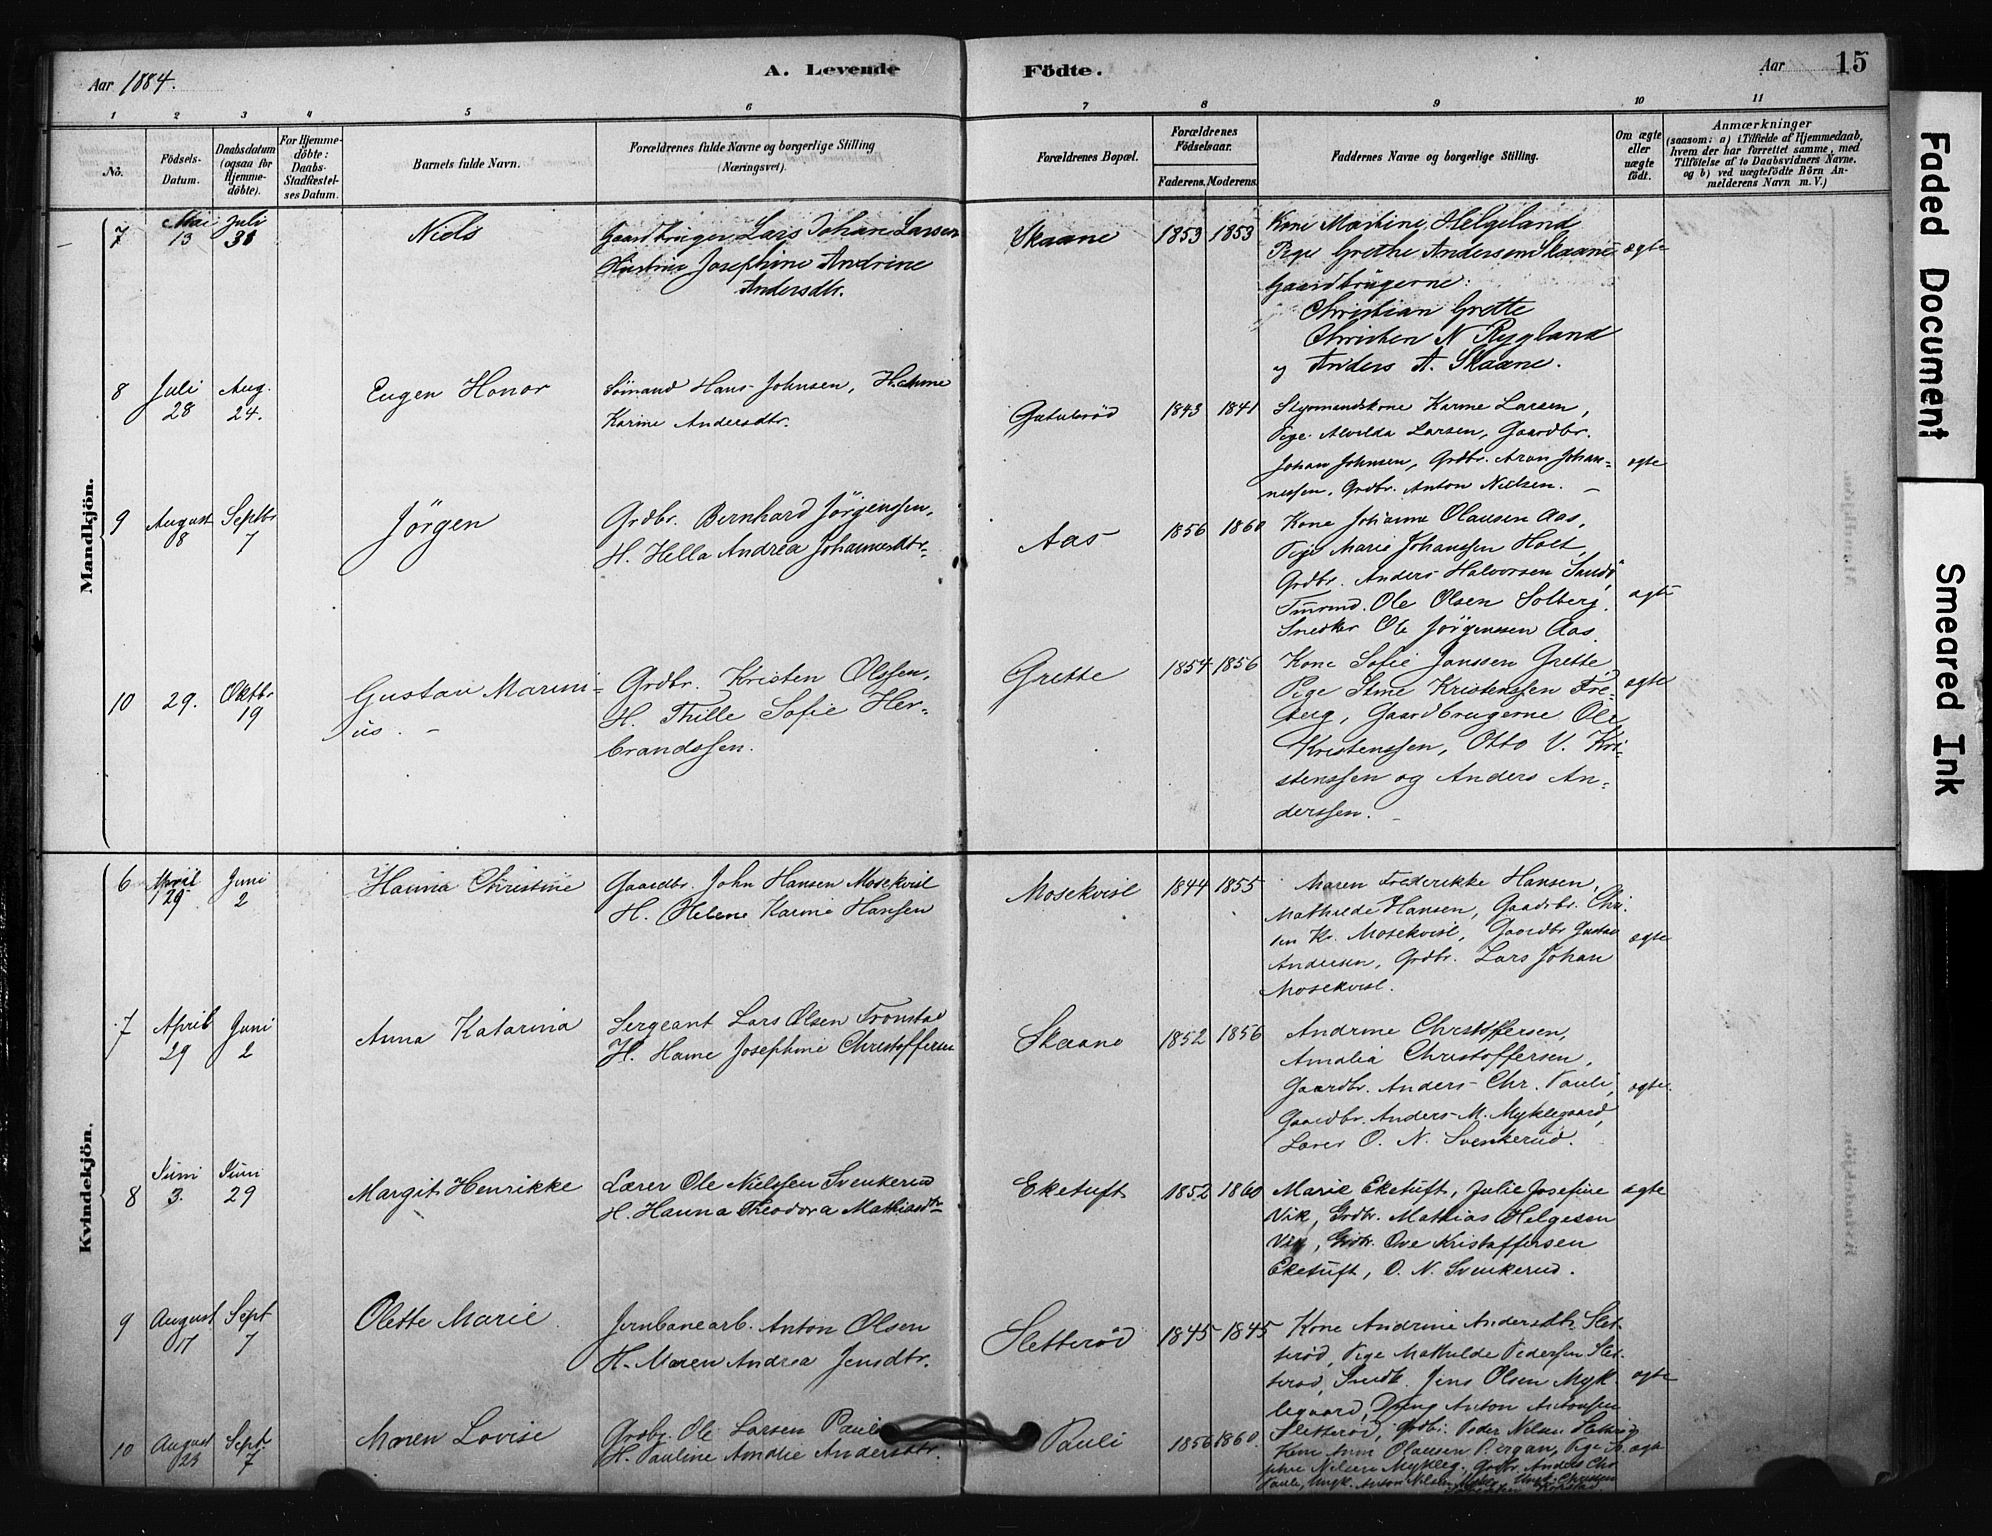 Aar 1884.
A. Levende
Födte.
Aar
15
1 2 3 4 5 6 7 8 9 10 11
No.
Födsels-
Datum.
Daabsdatum
(ogsaa for
Hjemme-
döbte).
For Hjemme-
döbte:
Daabs-
Stadfæstel-
ses Datum.
Barnets fulde Navn.
Forældrenes fulde Navne og borgerlige Stilling
(Næringsvei).
Forældrenes Bopæl.
Forældrenes
Födselsaar.
Faderens. Moderens.
Faddernes Navne og borgerlige Stilling.
Om ægte
eller
uægte
födt.
Anmærkninger
(saasom: a) i Tilfælde af Hjemmedaab,
hvem der har forrettet samme, med
Tilföielse af to Daabsvidners Navne,
og b) ved uægtefödte Börn An-
melderens Navn m. V.)
Faded Document
Smeared Ink
Mandkjön.
7 Mai 13 Juli Niels
Gaardbruger Lars Johan Larsen
Hustru Josephine Andrine
Andersdtr.
Skaane 1853 1853
Kone Martine Helgeland
Pige Grethe Andersen Skaane
Gaardbrugerne:
Christian Grette
Christen N Rygland
og Anders A. Skaane.
ægte
8 Juli 28 Aug. 24. Eugen Honor
Sömand Hans Johnsen,
Karine Andersdtr.
1843 1841
Styrmandskone Karine Larsen,
Pige Alvilda Larsen, Gaardbr.
Johan Johnsen, Grdbr. Aron Johan-
nessen, Grdbr. Anton Nielsen. —
ægte
9 August 8 Septbr 7 Jörgen
Grdbr. Bernhard Jörgenssen,
H. Hella Andrea Johannesdtr.
Aas 1856 1860
Kone Johanne Olausen Aas,
Pige Marie Johanssen Holt,
Grdbr. Anders Halvorsen Sandö,
Tmrmd. Ole Olsen Solberg.
Snedker Ole Jörgenssen Aas.
ægte
10 29. Oktbr 19 Gustav Marini-
us. —
Grdbr. Kristen Olssen,
H. Thille Sofie Her-
brandssen.
Grette 1854 1856
Kone Sofie Janssen Grette,
Pige Stine Kristenssen Fre-
berg, Gaardbrugerne Ole
Kristenssen, Otto V. Kri-
stenssen og Anders An-
derssen. —
ægte
Kvindekjön.
6 April 29 Juni 2 Hanna Christine
Gaardbr. John Hansen Mosekvisl
H. Helene Karine Hansen
Mosekvisl 1844 1855
Maren Frederikke Hansen,
Mathilde Hansen, Gaardbr. Chri-
sten Kr. Mosekvisl, Gaardbr Gustav
Andersen, Grdbr. Lars Johan
Mosekvisl.
ægte
7 April 29 Juni 2 Anna Katarina
Sergeant Lars Olsen Fronstad
H. Hanne Josephine Christoffersen
Skaane 1852 1856
Andrine Christoffersen,
Amalia Christoffersen,
Gaardbr. Anders Chr. Pauli,
Gaardbr. Anders M. Myklegaard,
Lærer O. N. Svenkerud.
ægte.
8 Juni 3. Juni 29 Margit Henrikke
Lærer Ole Nielssen Svenkerud
H. Hanna Theodora Mathiasdtr
Eketuft 1852 1860
Marie Eketuft, Julie Josefine
Vik, Grdbr. Mathias Helgesen
Vik, Grdbr. Ove Kristoffersen
Eketuft, O. N. Svenkerud.
ægte
9 August 17 Sept 7 Olette Marie
Jernbanearb. Anton Olsen
H. Maren Andrea Jensdtr.
Sletteröd 1845 1845
Kone Andrine Andersdtr. Slet-
teröd, Pige Mathilde Pedersen Slet-
teröd, Snedk. Jens Olsen Myk-
legaard, Yng Anton Antonsen
Sletteröd, Grdbr. Peder Nilsen
ægte
10 August 23 Sept. 7 Maren Lovise
Grdbr. Ole Larsen Pauli
H. Pauline Amalie Andersdtr.
Pauli 1856 1860
Kone Anne Olaussen Bergan, Pige
Nielsen Mykleg., Grdbr. Anders Chr
Pauli, Ungk. Anton Nilsen
ægte